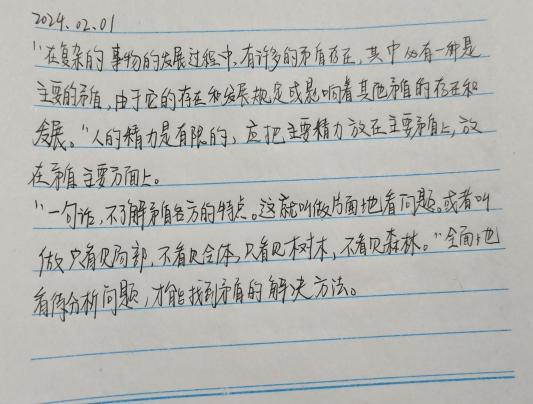 2024.02.01
"在复杂的事物的发展过程中,有许多的矛盾存在,其中必有一种是
主要的矛盾,由于它的存在和发展规定或影响着其他矛盾的存在和
发展。"人的精力是有限的,应把主要精力放在主要矛盾上,放
在矛盾主要方面上。
"一句话,不了解矛盾各方的特点。这就叫做片面地看问题。或者叫
做只看见局部,不看见全体,只看见树木,不看见森林。"全面地
看待分析问题,才能找到矛盾的解决方法。